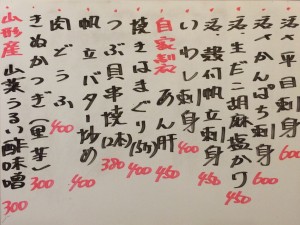 活平目刺身 600
活かんぱち刺身 600
活生だこ胡麻塩かり 450
活殻付帆立刺身 450
いわし刺身 400
自家製 あん肝 450
焼きはまぐり(5ヶ) 400
つぶ貝串焼(2本) 380
帆立バター炒め 400
肉どうふ 400
きぬかつぎ(里芋) 300
山形産 山菜うるい酢味噌 300